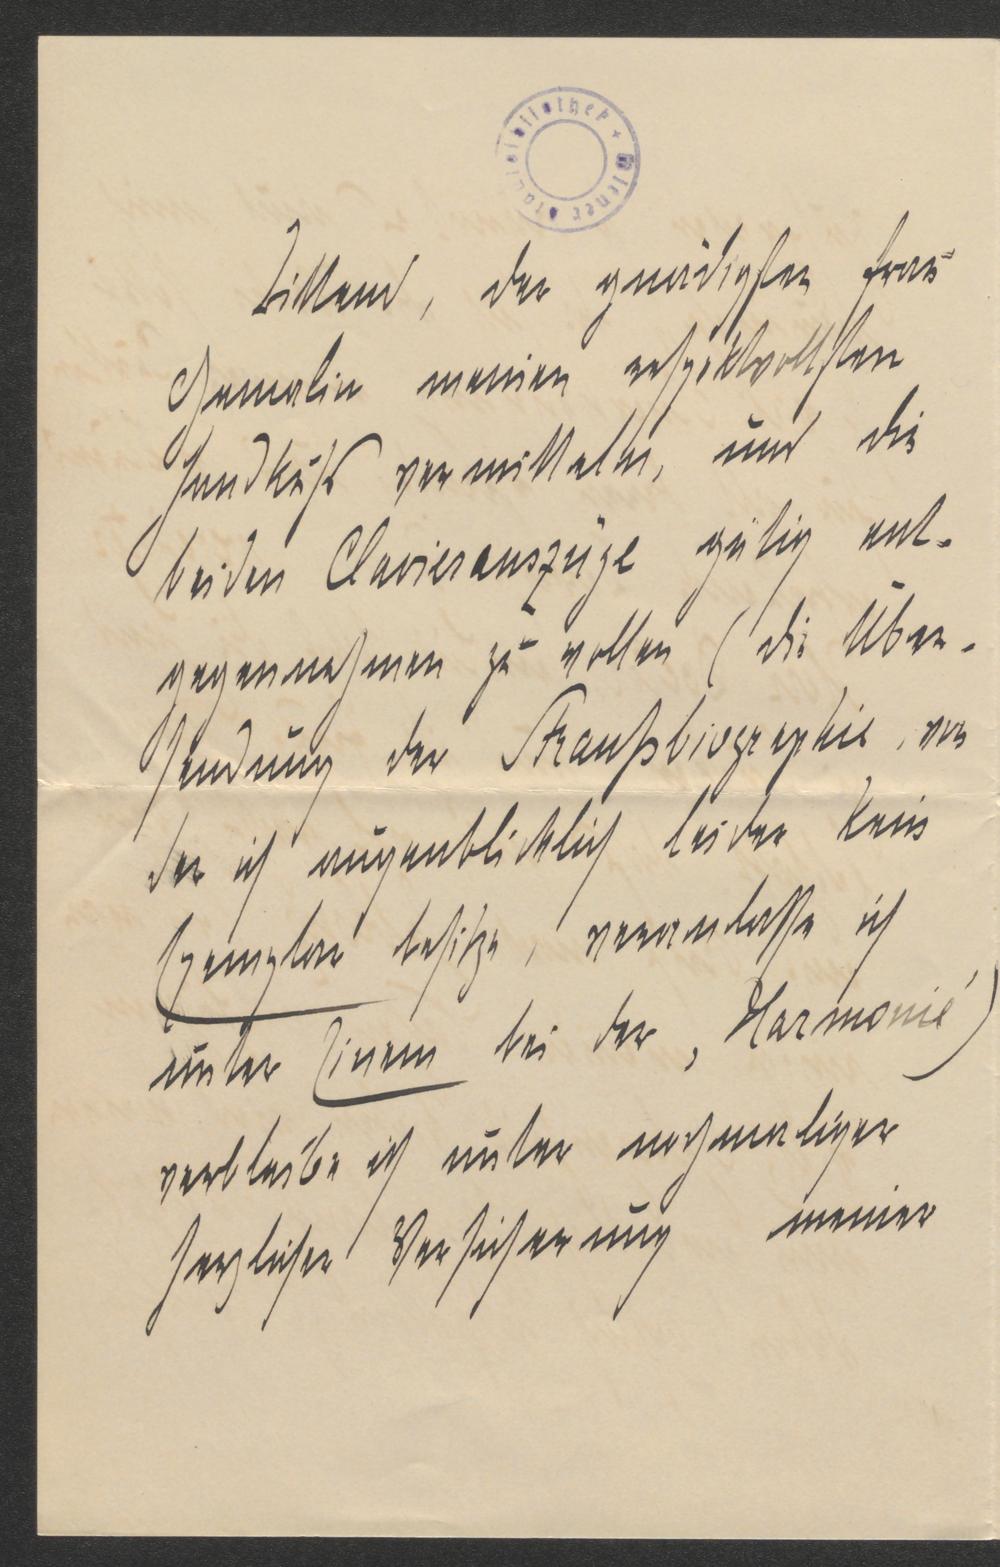 Wiener Stadtbibliothek +
Bittend, der gnädigsten Frau
Gemalin meinen respektvollsten
Handkuß vermitteln, und die
beiden Clavierauszüge gütig ent-
gegennehmen zu wollen (die Über-
sendung der Straußbiographie, von
der ich augenblicklich leider kein
Exemplar besitze, veranlasse ich
unter Einem bei der „Harmonie“)
verbleibe ich unter nochmaliger
herzlicher Versicherung meiner